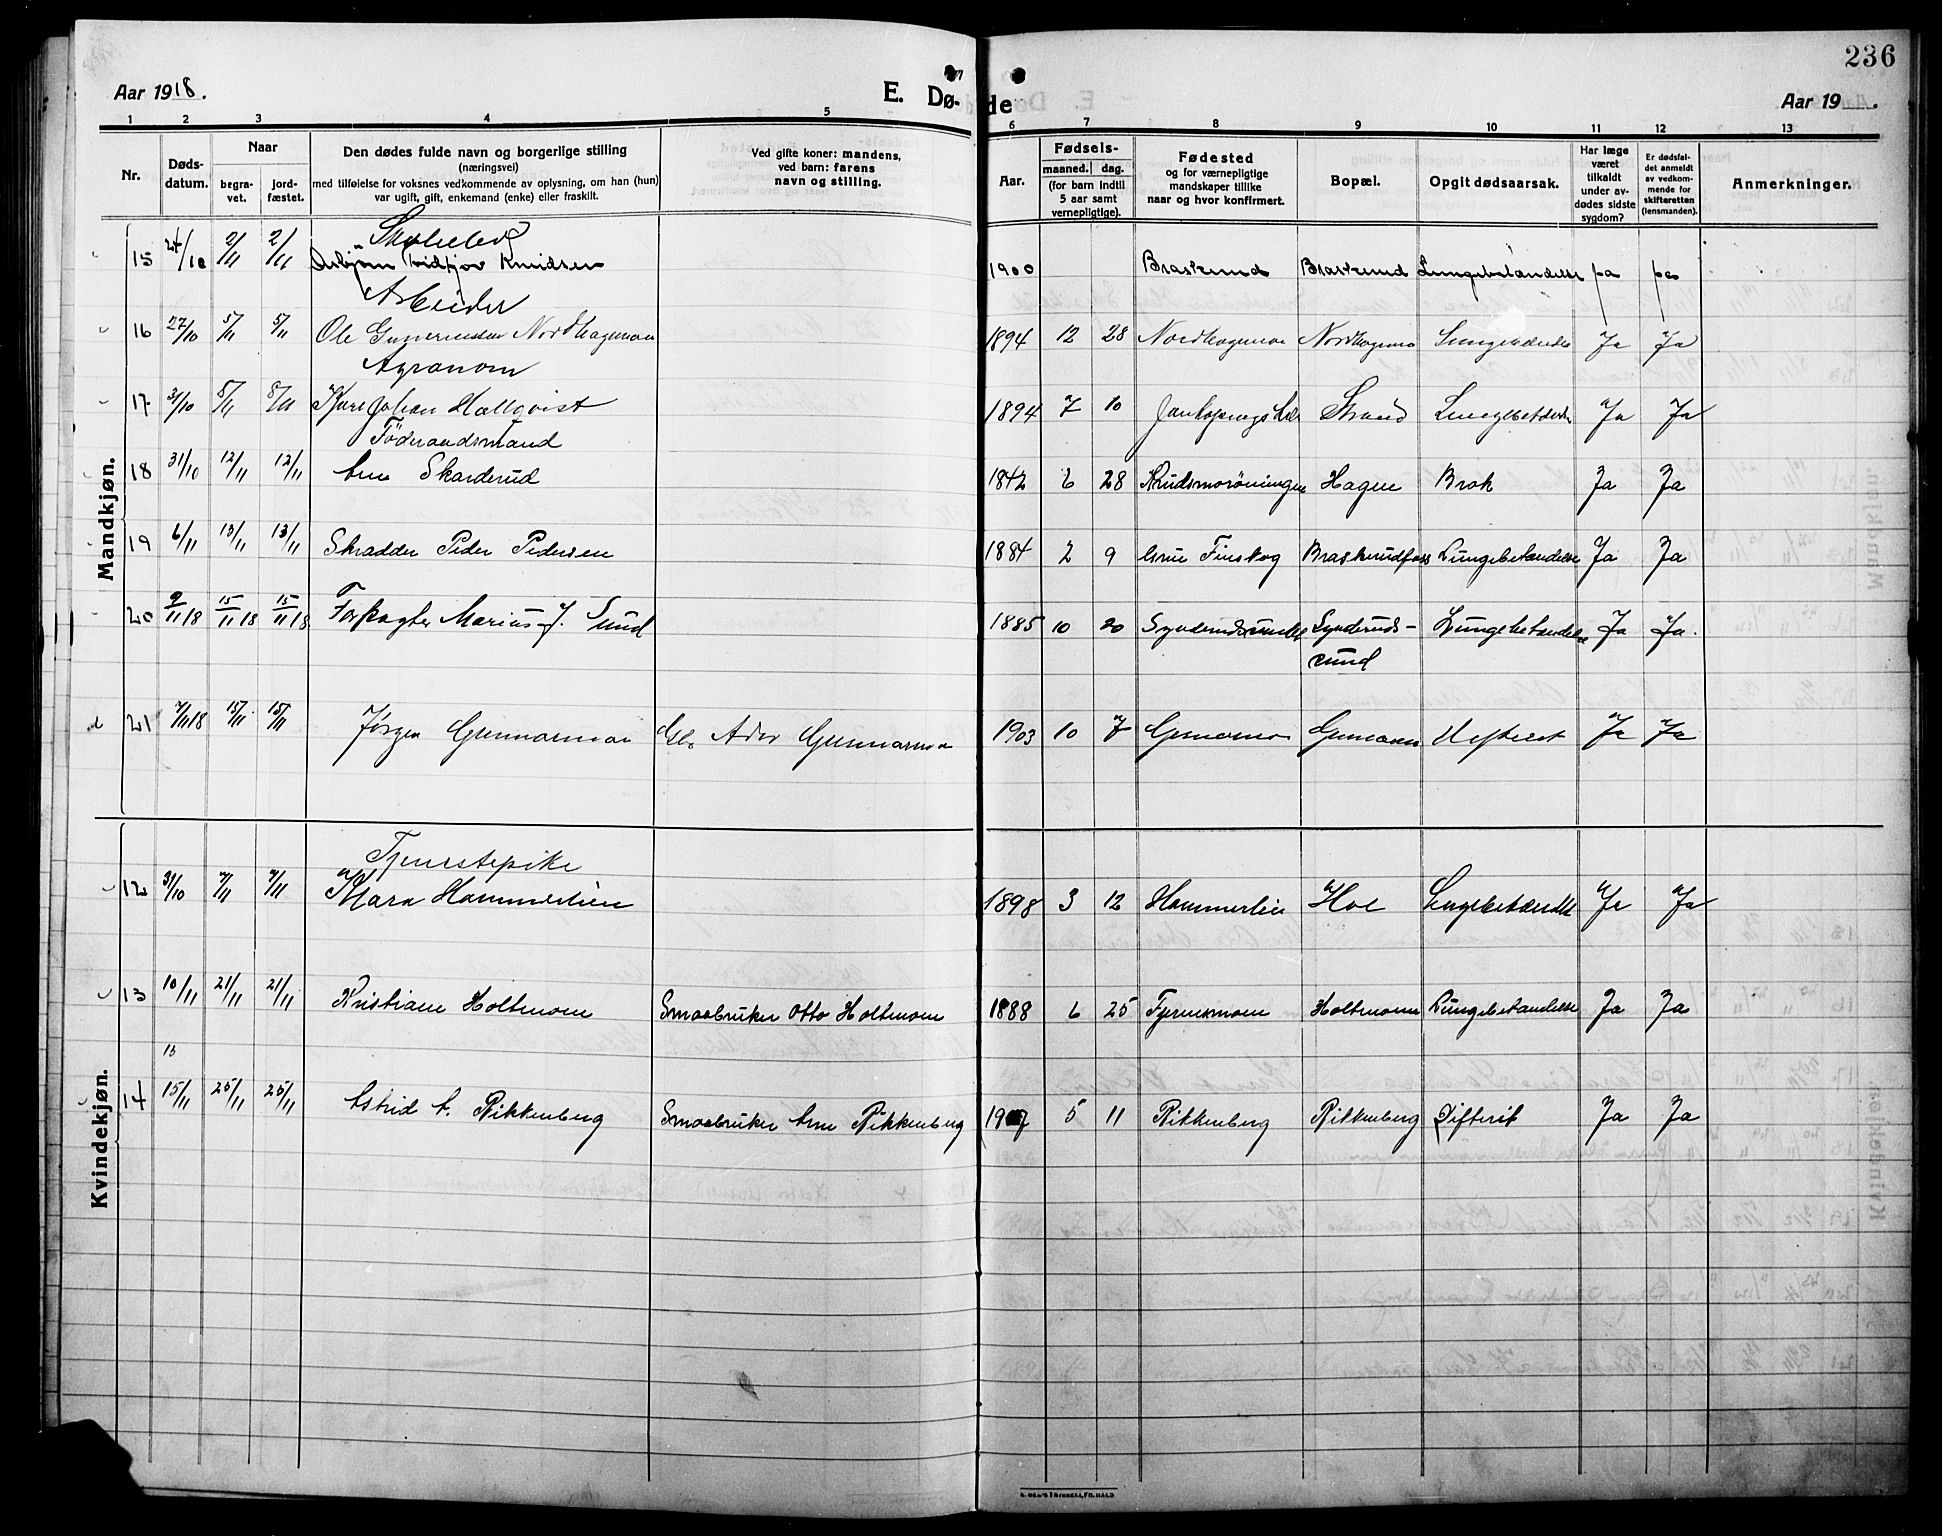 236
Aar 1918.
E. Dø-
de
Aar 19
1 2 3 4 5 6 7 8 9 10 11 12 13
Nr.
Døds-
datum.
Naar
begra-
vet.
jord-
fæstet.
Den dødes fulde navn og borgerlige stilling
(næringsvei)
med tilføielse for voksnes vedkommende av oplysning, om han (hun)
var ugift, gift, enkemand (enke) eller fraskilt.
Ved gifte koner: mandens,
ved barn: farens
navn og stilling.
Aar.
Fødsels-
maaned. dag.
(for barn indtil
5 aar samt
vernepligtige).
Fødested
og for værnepligtige
mandskaper tillike
naar og hvor konfirmert.
Bopæl.
Opgit dødsaarsak.
Har læge
været
tilkaldt
under av-
dødes sidste
sygdom?
Er dødsfal-
det anmeldt
av vedkom-
mende for
skifteretten
(lensmanden).
Anmerkninger.
Mandkjøn.
15 24/10 2/11 2/11 Knudsen 1900 Braskerud Braskerud Lungebetændelse ja ja
Arbeider
16 27/10 5/11 5/11 Ole Guneriussen Nordhagmoen 1894 12 28 Ja Ja
Agronom
17 31/10 8/11 8/11 Karl Johan Hallqvist 1894 7 10 Strand Ja Ja
Föderaadsmand
18 31/10 12/11 12/11 Arne Skarderud 1842 6 28 Hagen Brok Ja Ja
19 6/11 13/11 13/11 Skradder Peder Pedersen 1884 2 9 Grue Finskog Braskerudfoss Lungebetændelse Ja Ja
20 9/11 18 15/11 18 15/11 18 Forpagter Marius J. Sund 1885 10 20 Lynderuds- Lungebetændelse Ja Ja.
sund
21 7/11 18 15/11 15/11 Jørgen Gunnarmoen 1903 10 7 Ja Ja
Kvindekjøn.
Tjenestepike
12 31/10 7/11 7/11 Klara Hammerlien 1898 3 12 Hammerlien Hol Ja Ja
13 10/11 21/11 21/11 Kristiane Holtmoen Smaabruker Otto Holtmoen 1888 6 25 Tjernsmoen Holtmoen Lungebetændelse Ja Ja
13
14 15/11 25/11 25/11 Astrid A. Rikkenberg Smaabruker Arne Rikkenberg 1907 5 11 Rikkenberg Rikkenberg Difterit Ja Ja